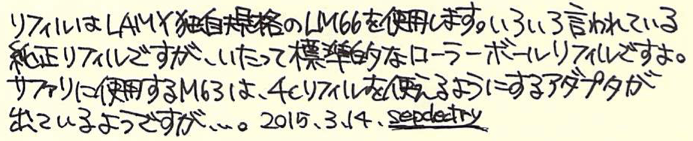 リフィルはLAMY独自規格のLM66を使用します。いろいろ言われている
純正リフィルですが、いたって標準的なローラーボールリフィルですよ。
サファリに使用するM63は、4cリフィルを使えるようにするアダプタが
出ているようですが…。2015.3.14. sepdectry